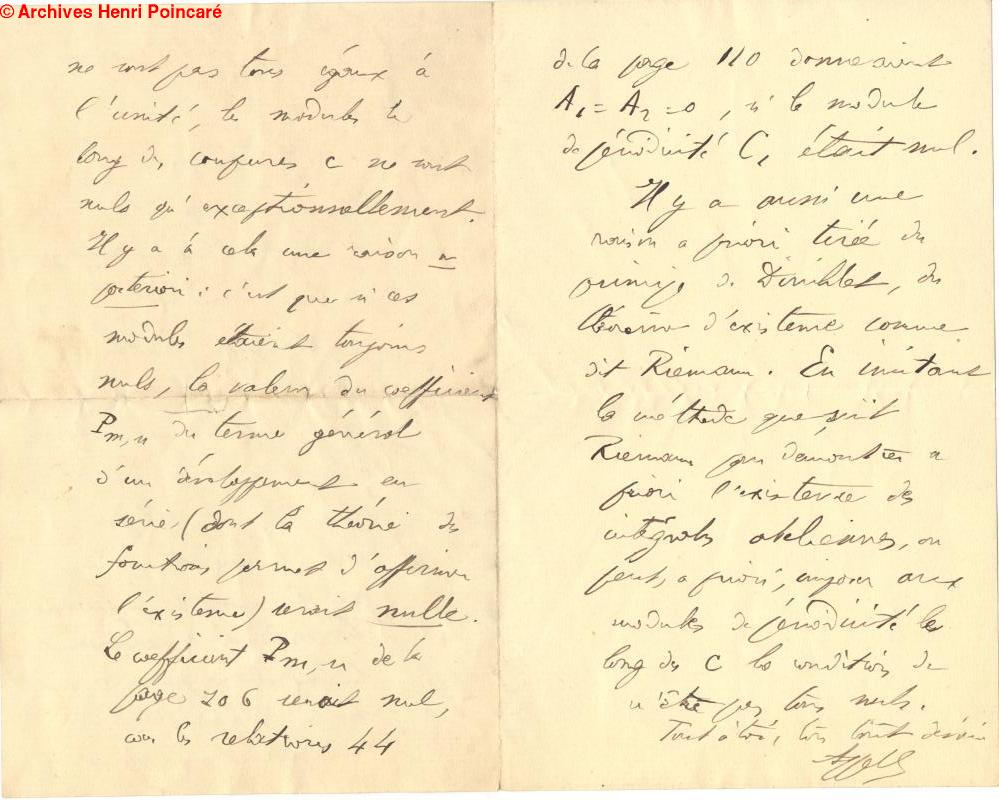 © Archives Henri Poincaré
ne sont pas tous égaux à
l'unité, les modules le
long des coupures c ne sont
nuls qu'exceptionnellement.
Il y a à cela une raison a
posteriori : c'est que si ces
modules étaient toujours
nuls, la valeur du coefficient
Pm,n du terme général
d'un développement en
série (dont la théorie des
fonctions permet d'affirmer
l'existence) serait nulle.
Le coefficient Pm,n de la
page 206 serait nul,
car les relations 44
de la page 110 donneraient
A1 = A2 = 0, si le module
de périodicité C1 était nul.
Il y a aussi une
raison a priori tirée du
principe de Dirichlet, du
théorème d'existence comme
dit Riemann. En imitant
la méthode que suit
Riemann pour démontrer a
priori l'existence des
intégrales abéliennes, on
peut, a priori, imposer aux
modules de périodicité le
long des C les conditions de
n'être pas tous nuls.
Tout à toi, ton tout dévoué
Appell